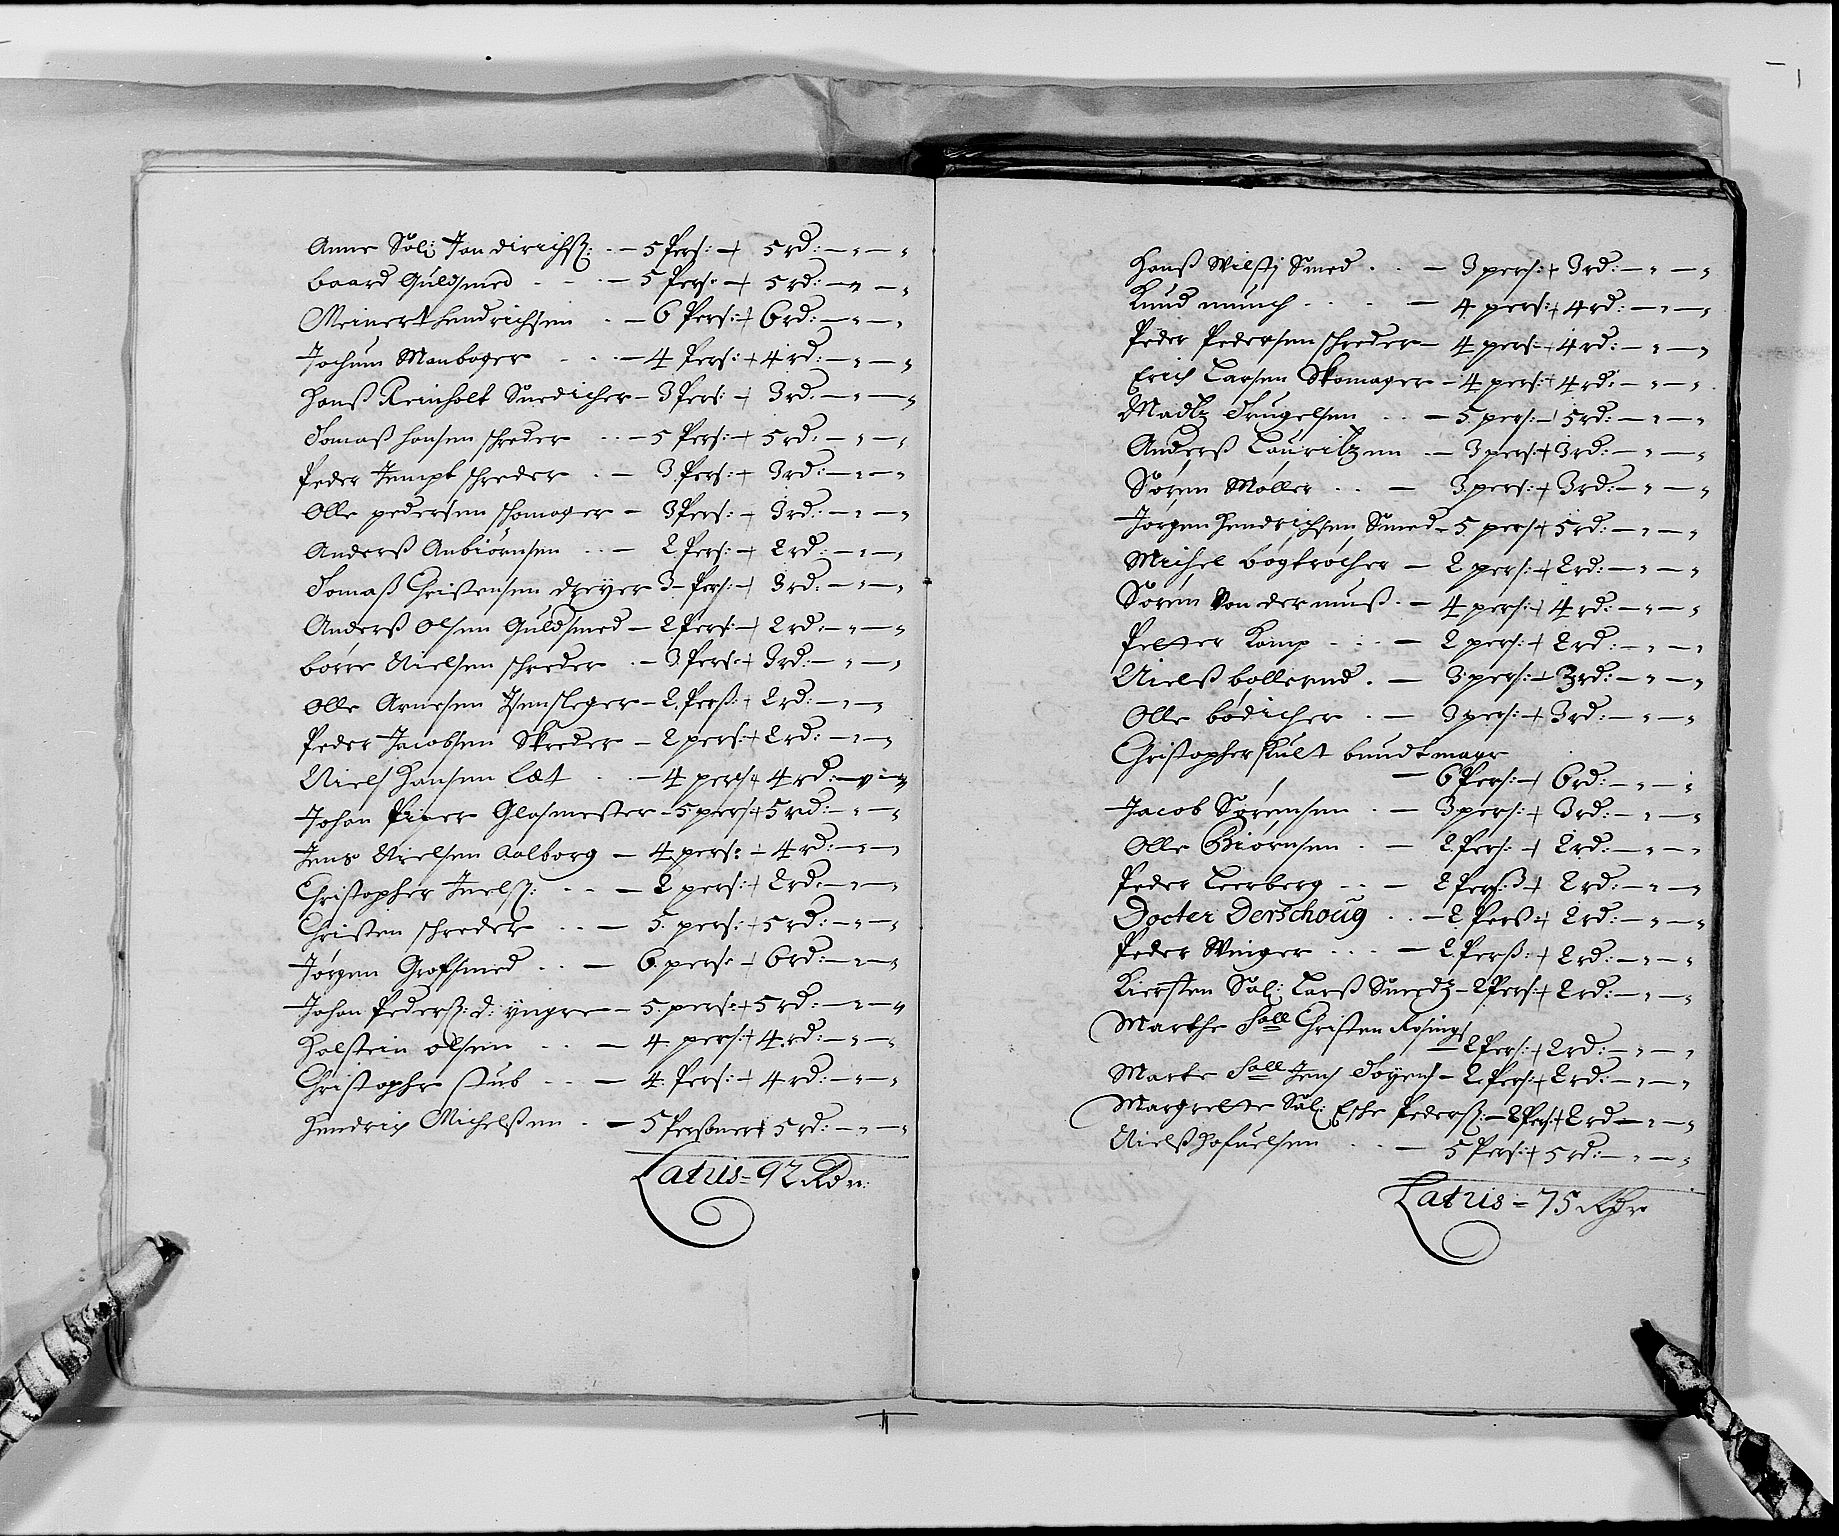 Anne Sal: Jan dirichß: - 5 Pers: + 5 rd: - " - "
baard Guldsmed - 5 Pers: + 5 rd: - " - "
Meinert hendrichsen - 6 Pers: + 6 rd: - " - "
Jochum Manbager - 4 Pers: + 4 rd: - " - "
Hanß Reinholt Snedicher - 3 Pers: + 3 rd: - " - "
Tomaß hansen schreder - 5 Pers: + 5 rd: - " - "
Peder Jempt schreder - 3 Pers: + 3 rd: - " - "
Olle pedersen schomager - 3 Pers: - 3 rd: - " - "
Anderß Anbiørnsen - 2 Pers: + 2 rd: - " - "
Tomaß Christensen dreyer 3 - Pers: + 3 rd: - " - "
Anderß Olsen Guldsmed - 2 Pers: + 2 rd: - " - "
børre Nielsen schreder - 3 Pers: + 3 rd: - " - "
Olle Arnesen Isensleger - 2 Perß: + 2 rd: - " - "
Peder Jacobsen Skreder - 2 pers: + 2 rd: - " - "
Niels Hansen læt - 4 pers + 4 rd: - " - "
Johan Glasmester - 5 pers: + 5 rd: - " - "
Jens Nielsen Aalborg - 4 pers: + 4 rd: - " - "
Christopher Juelß: - 2 pers: + 2 rd: - " - "
Christen schreder - 5 pers: + 5 rd: - " - "
Jørgen Grofsmed - 6 pers: - 6 rd: - " - "
Johan Pederß: d: yngre - 5 pers: + 5 rd: - " - "
Holstein olsen - 4 pers: + 4 rd: - " - "
Christopher stub - 4 Pers: + 4 rd: - " - "
Hendrich Michelßen - 5 Persoener + 5 rd: - " - "
Latus = 92 Rdr:
Hanß Wilstj Smed - 3 pers: + 3 rd: - " - "
Knud munch - 4 pers: + 4 rd: - " - "
Peder Pedersen schreder - 4 pers: + 4 rd: - " - "
Erich Larsen Skomager - 4 pers: + 4 rd: - " - "
Madtz Trugelsen - 5 pers: - 5 rd: - " - "
Anderß Lauritzen - 3 pers: + 3 rd: - " - "
Søren Møller - 3 pers: + 3 rd: - " - "
Jørgen Hendrichsen Smed - 5 pers + 5 rd: - " - "
Michel bogtrøcher - 2 pers: + 2 rd: - " - "
Søren Von der muß - 4 pers: + 4 rd: - " - "
Petter Kamp - 2 pers: + 2 rd: - " - "
Nielß bollernd - 3 pers: + 3 rd: - " - "
Olle bødicher - 3 pers: + 3 rd: - " - "
Christopher skult bundtmager
- 6 Pers: + 6 rd: - " - "
Jacob Sørensen - 3 pers: + 3 rd: - " - "
Olle Biørnsen - 2 Pers: + 2 rd: - " - "
Peder Leerberg - 2 Perß + 2 rd: - " - "
Docter Derschoug - 2 Perß + 2 rd: - " - "
Peder Winger - 2 Perß: + 2 rd: - " - "
Kiersten Sal: Larß Smedtz - 2 Pers: + 2 rd: - " - "
Marthe Sall Christen Rosings
- 2 Pers: + 2 rd: - " - "
Marte Sall Jens Toyens - 2 Pers: + 2 rd: - " - "
Margrette Sal: Eske Pederß: - 2 Pers: + 2 rd - " - "
Nielß Hofuelsen - 5 Pers: + 5 rd: - " - "
Latus = 75 Rdr